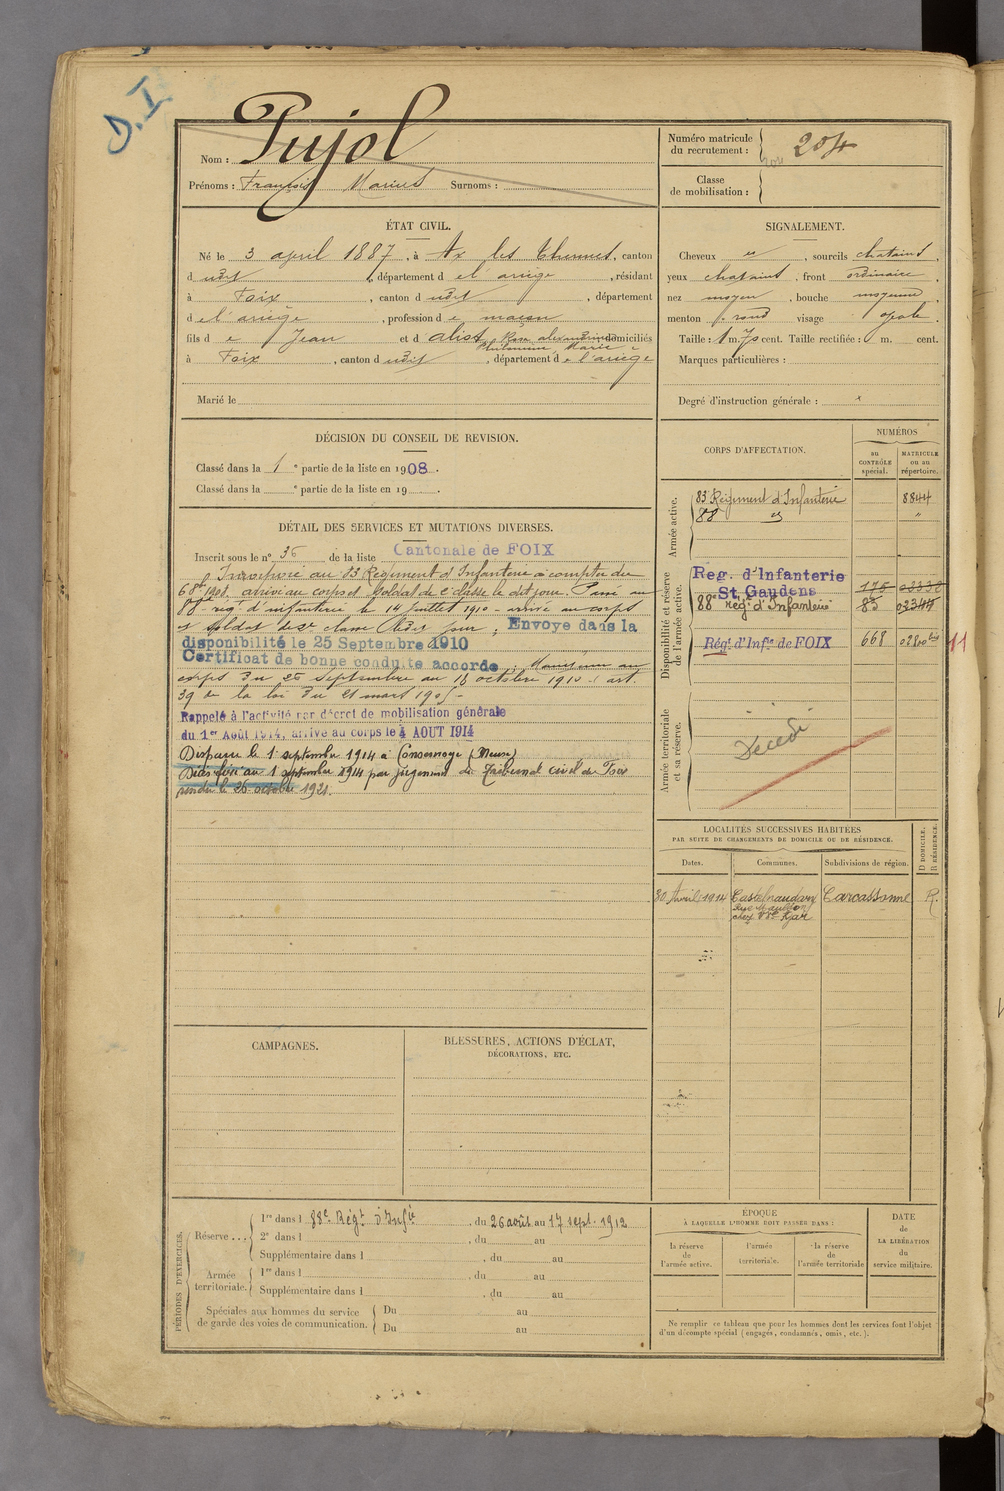 D.I
Nom : Pujol
Prénoms : François Marius Surnoms :
Numéro matricule
du recrutement : 204
204
Classe
de mobilisation :
ÉTAT CIVIL.
Né le 3 avril 1887, à Ax les Thermes, canton
d udit, département d e l'ariège, résidant
à Foix, canton d udit, département
d e l'ariège, profession d e maçon
fils d e Jean et d Rose alexandrine domiciliés
Philomène Marie
à Foix, canton d udit, département d e l'ariège
Marié le
SIGNALEMENT.
Cheveux et, sourcils chatains,
yeux chatains, front ordinaire,
nez moyen, bouche moyenne
menton rond visage ovale.
Taille : 1 m. 70 cent. Taille rectifiée : m. cent.
Marques particulières :
Degré d'instruction générale : x
DÉCISION DU CONSEIL DE REVISION.
Classé dans la 1e partie de la liste en 1908.
Classé dans la e partie de la liste en 19 .
DÉTAIL DES SERVICES ET MUTATIONS DIVERSES.
Inscrit sous le n° 36 de la liste Cantonale de FOIX
Incorporé au 83 Régiment d'Infanterie à compter du
6 8bre 1908, arrivé au corps et soldat de 2e classe le dit jour. Passé au
88e rég. d'infanterie le 14 juillet 1910 - arrivé au corps
et soldat de 2e classe ledit jour ; Envoyé dans la
disponibilité le 25 Septembre 1910
Certificat de bonne conduite accordé ; Maintenu au
corps du 25 septembre au 18 octobre 1910 (art.
39 de la loi du 21 mars 1905 -
Rappelé à l'activité par décret de mobilisation générale
du 1er Août 1914, arrivé au corps le 4 AOUT 1914
Disparu le 1 septembre 1914 à (Meuse)
Décès fixé au 1 septembre 1914 par jugement du Tribunal civil de Foix
rendu le 26 octobre 1921.
CORPS D'AFFECTATION.
NUMÉROS
au
CONTRÔLE
spécial.
MATRICULE
ou au
répertoire.
Armée active.
83 Régiment d'Infanterie 8844
88 d° "
Disponibilité et réserve
de l'armée active.
Reg. d'Infanterie
St. Gaudens 175 02338
88e Rég. d'Infanterie 83 02344
Régt. d'Infie de FOIX 668 11
Armée territoriale
et sa réserve.
Décédé
LOCALITÉS SUCCESSIVES HABITÉES
PAR SUITE DE CHANGEMENTS DE DOMICILE OU DE RÉSIDENCE.
Dates. Communes. Subdivisions de région. D DOMICILE. R RÉSIDENCE.
30 Avril 1914 Castelnaudary Carcassonne R.
chez
CAMPAGNES.
BLESSURES, ACTIONS D'ÉCLAT,
DÉCORATIONS, ETC.
PÉRIODES D'EXERCICES.
Réserve ...
1re dans l 88e Régt d'Infie, du 26 août au 17 sept. 1912
2e dans l , du au
Supplémentaire dans l , du au
Armée
territoriale.
1re dans l , du au
Supplémentaire dans l , du au
Spéciales aux hommes du service
de garde des voies de communication.
Du au
Du au
ÉPOQUE
À LAQUELLE L'HOMME DOIT PASSER DANS :
la réserve
de
l'armée active.
l'armée
territoriale.
la réserve
de
l'armée territoriale
DATE
de
LA LIBÉRATION
du
service militaire.
Ne remplir ce tableau que pour les hommes dont les services font l'objet
d'un décompte spécial (engagés, condamnés, omis, etc.).